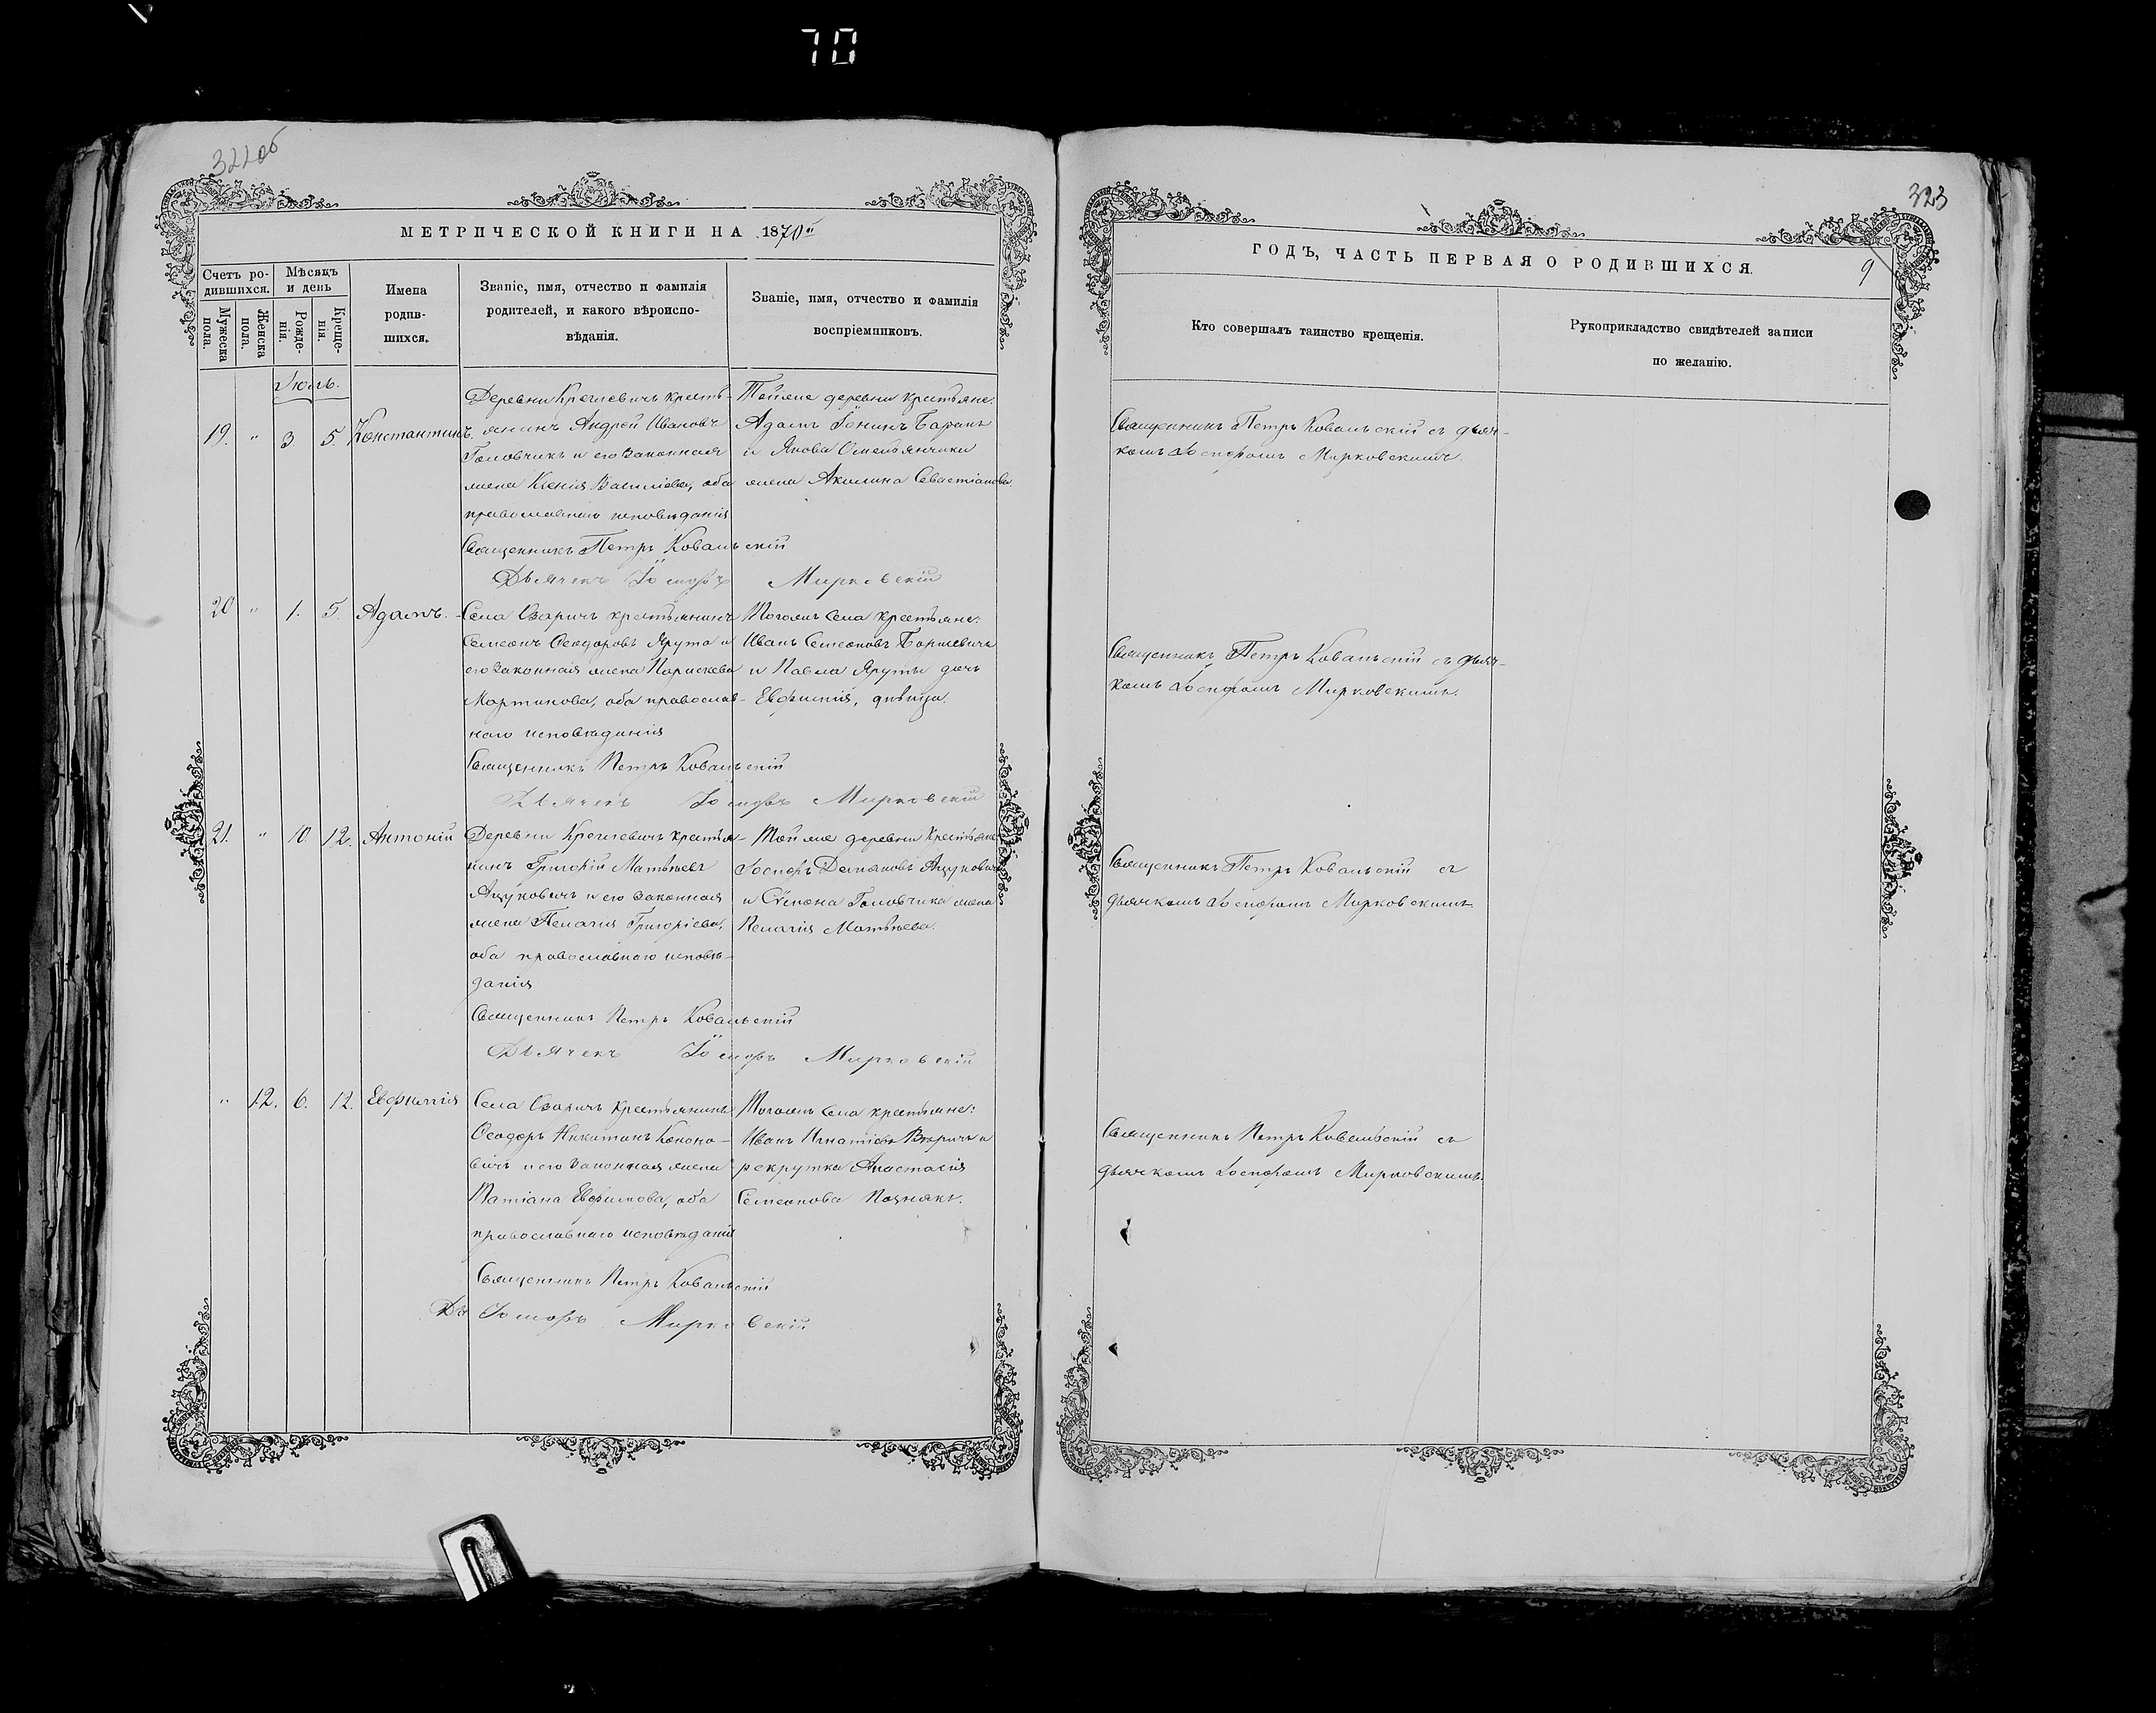 70
322об
323
МЕТРИЧЕСКОЙ КНИГИ НА 1870й
Счетъ ро-
дившихся.
Мѣсяцъ
и день
Мужеска
пола.
Женска
пола.
Рожде-
нія.
Креще-
нія.
Имена
родив-
шихся.
Званіе, имя, отчество и фамилія
родителей, и какого вѣроиспо-
вѣданія.
Званіе, имя, отчество и фамилія
воспріемниковъ.
Іюль.
19. " 3 5. Константинъ.
Деревни крестья-
янинъ Андрей Ивановъ
Головчикъ и его законная
жена Ксенія Василіева, оба
православнаго исповѣданія
Тойже деревни крестьяне:
Адамъ Баранъ
и Якова Омельянчика
жена Акилина Севастіанова.
Священникъ Петръ Ковальскій
Дьячекъ Іосифъ Мирковскій
20 " 1. 5. Адамъ.
Села Озаричъ крестьянинъ
Семеонъ Ѳеодоровъ Ярута и
его законная жена Параскева
Мартинова, оба православ-
наго исповѣданія
Тогожъ села крестьяне:
Иванъ Семеоновъ
и Павла Яруты дочь
Евфимія, дѣвица.
Священникъ Петръ Ковальскій
Дьячекъ Іосифъ Мирковскій
21. " 10. 12. Антоній
Деревни крестья-
нинъ Григорій Матѳѣевъ
Ацуковичъ и его законная
жена Пелагія Григоріева,
оба православнаго исповѣ-
данія
Тойже деревни крестьяне
Іосифъ Демяновъ Ацуковичъ
и Степона Головчика жена
Пелагія Матѳѣева.
Священникъ Петръ Ковальскій
Дьячекъ Іосифъ Мирковскій
" 12. 6. 12. Евфимія
Села Озаричъ крестьянинъ
Ѳеодоръ Никитинъ Кононо-
вичъ и его законная жена
Татіана Евфимова, оба
православнаго исповѣданія
Тогожъ села крестьяне:
Иванъ Игнатіевъ и
рекрутка Анастасія
Семеонова Познякъ.
Священникъ Петръ Ковальскій
Дь Іосифъ Мирковскій
ГОДЪ, ЧАСТЬ ПЕРВАЯ О РОДИВШИХСЯ.
9
Кто совершалъ таинство крещенія.
Рукоприкладство свидѣтелей записи
по желанію.
Священникъ Петръ Ковальскій съ дьяч-
комъ Іосифомъ Мирковскимъ.
Священникъ Петръ Ковальскій съ дьяч-
комъ Іосифомъ Мирковскимъ.
Священникъ Петръ Ковальскій съ
дьячкомъ Іосифомъ Мирковскимъ.
Священникъ Петръ Ковальскій съ
дьячкомъ Іосифомъ Мирковскимъ.